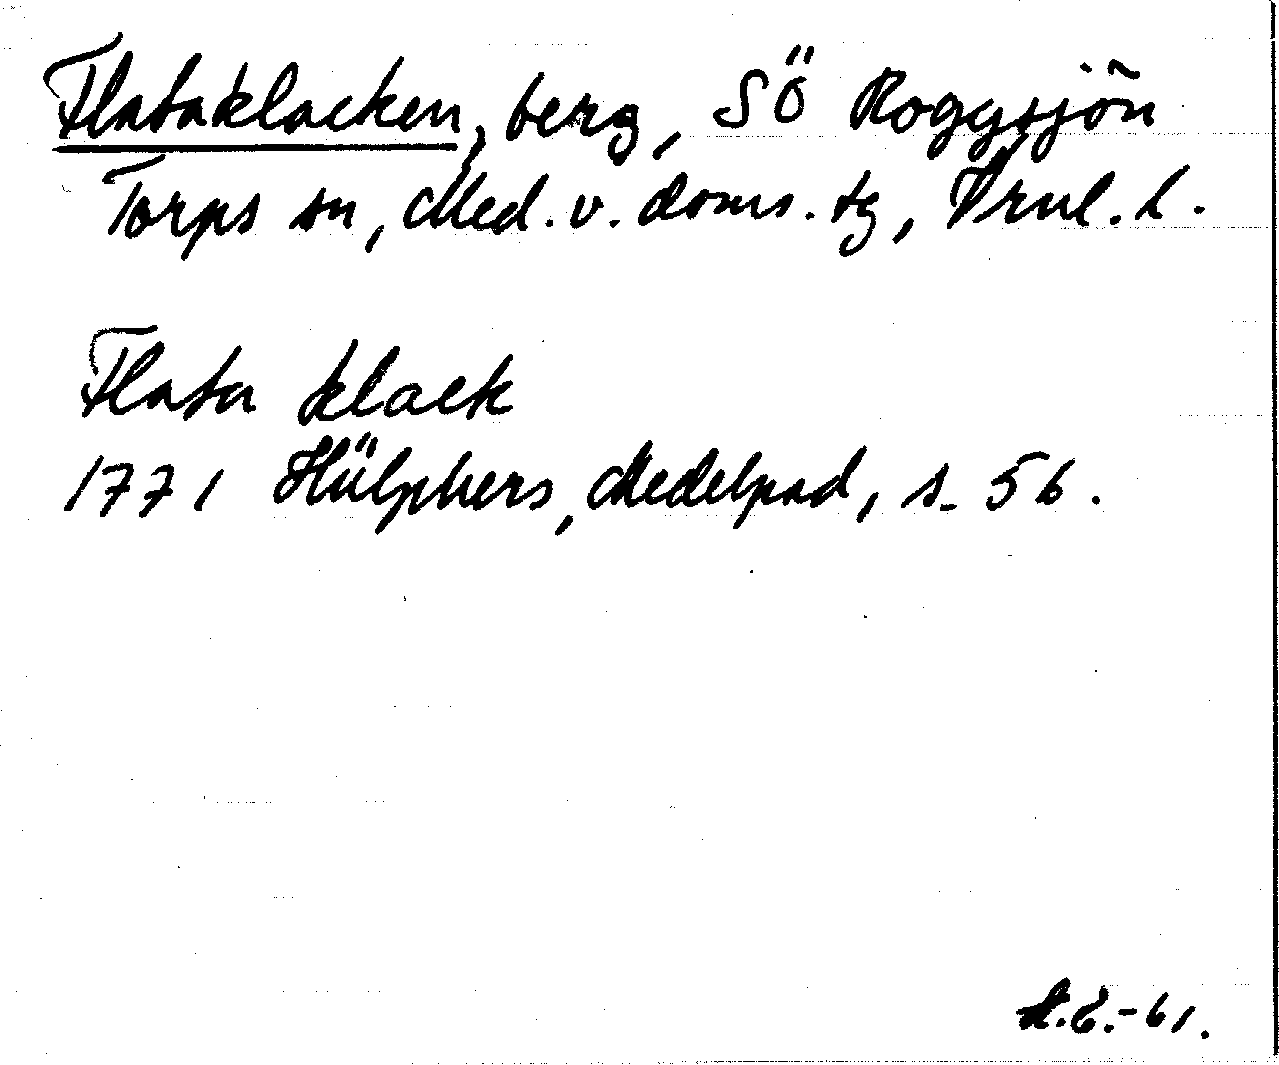 Flataklacken, berg, SÖ Roggsjön
Torps sn, Med. v. doms. tg, Vrnl. l.
Flata klack
1771 Hülphers, Medelpad, s. 56.